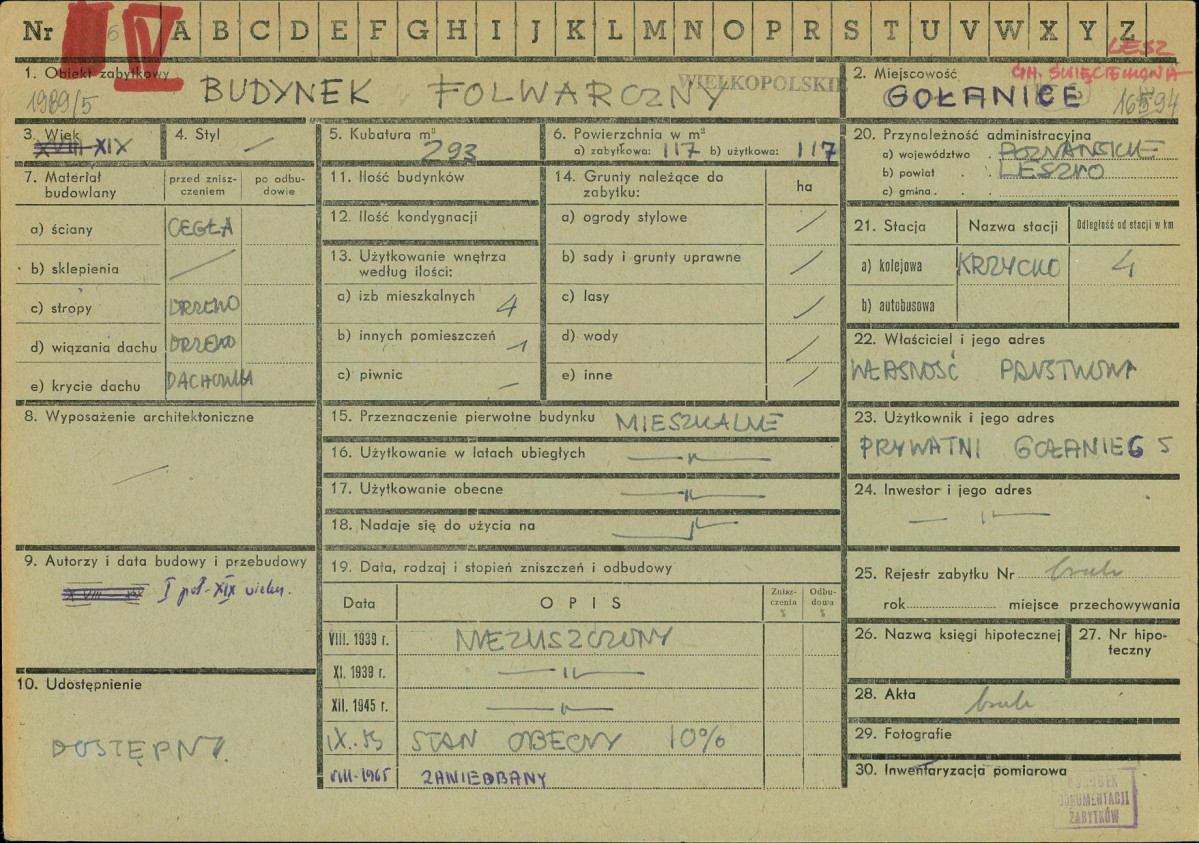 Nr IV A B C D E F G H I J K L M N O P R S T U V W X Y Z
LESZ
1. Obiekt zabytkowy
1989/5
BUDYNEK FOLWARCZNY
WIELKOPOLSKIE
2. Miejscowość
GM. ŚWIĘCIECHOWA
GOŁANICE
3. Wiek
XVIII-XIX
4. Styl
—
5. Kubatura m³
293
6. Powierzchnia w m²
a) zabytkowa: 117 b) użytkowa: 117
7. Materiał budowlany
przed zniszczeniem
po odbudowie
a) ściany CEGŁA
b) sklepienia —
c) stropy DRZEWO
d) wiązania dachu DRZEWO
e) krycie dachu DACHÓWKA
8. Wyposażenie architektoniczne
—
9. Autorzy i data budowy i przebudowy
XVIII XIX I poł. XIX wieku.
10. Udostępnienie
DOSTĘPNY.
11. Ilość budynków
12. Ilość kondygnacji
13. Użytkowanie wnętrza
według ilości:
a) izb mieszkalnych 4
b) innych pomieszczeń 1
c) piwnic —
14. Grunty należące do
zabytku:
ha
a) ogrody stylowe /
b) sady i grunty uprawne /
c) lasy /
d) wody /
e) inne /
15. Przeznaczenie pierwotne budynku MIESZKALNE
16. Użytkowanie w latach ubiegłych —"—
17. Użytkowanie obecne —"—
18. Nadaje się do użycia na —"—
19. Data, rodzaj i stopień zniszczeń i odbudowy
Data
OPIS
Zniszczenia %
Odbudowa %
VIII. 1939 r. NIEZUSZCZONY
XI. 1939 r. —"—
XII. 1945 r. —"—
IX. 55 STAN OBECNY 10%
VIII-1965 ZANIEDBANY
20. Przynależność administracyjna
a) województwo POZNAŃSKIE
b) powiat LESZNO
c) gmina
21. Stacja
Nazwa stacji
Odległość od stacji w km
a) kolejowa KRZYCKO 4
b) autobusowa
22. Właściciel i jego adres
WŁASNOŚĆ PAŃSTWOWA
23. Użytkownik i jego adres
PRYWATNI GOŁANIEG 5
24. Inwestor i jego adres
—"—
25. Rejestr zabytku Nr brak
rok miejsce przechowywania
26. Nazwa księgi hipotecznej
27. Nr hipoteczny
28. Akta brak
29. Fotografie
30. Inwentaryzacja pomiarowa
OŚRODEK
DOKUMENTACJI
ZABYTKÓW